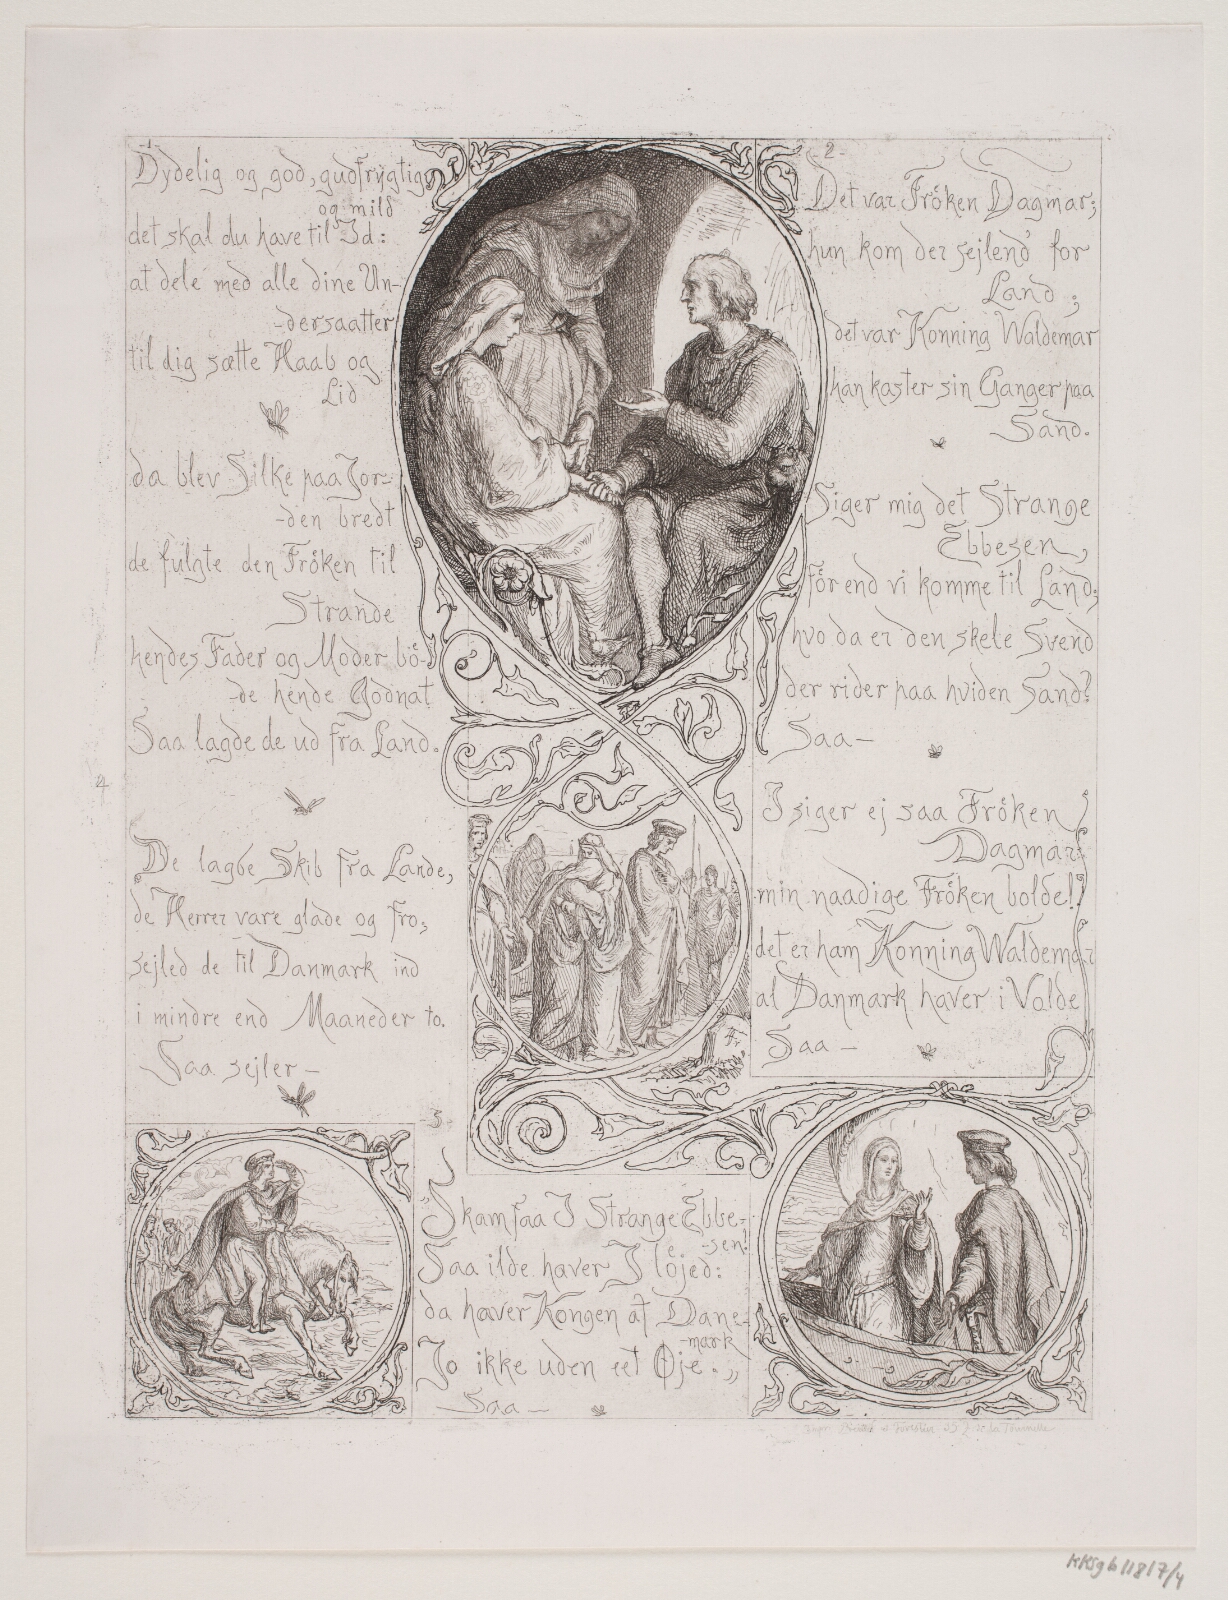 -1-
Dydelig og god, gudfrygtig
og mild
det skal du have til Id:
at dele med alle dine Un-
-dersaatter
til dig sætte Haab og
Lid
da blev Silke paa Jor-
-den bredt
de fulgte den Fröken til
Strande
hendes Fader og Moder bö-
-de hende Godnat
Saa lagde de ud fra Land.
De lagde Skib fra Lande,
de Herrer vare glade og fro;
sejled de til Danmark ind
i mindre end Maaneder to.
Saa sejler-
-2-
Det var Fröken Dagmar;
hun kom der sejlend' for
Land;
det var Konning Waldemar
han kaster sin Ganger paa
Sand.
Siger mig det Strange
Ebbesen,
för end vi komme til Land;
hvo da er den skele Svend
der rider paa hviden Sand?
Saa-
I siger ej saa Fröken
Dagmar:
min naadige Fröken bolde!
det er ham Konning Waldemar
al Danmark haver i Volde
Saa-
-3-
Skam faa I Strange Ebbe-
-sen!
Saa ilde haver I löjed:
da haver Kongen af Dane-
-mark
Jo ikke uden eet Øje.„
Saa-
4
KKSgb11817/4